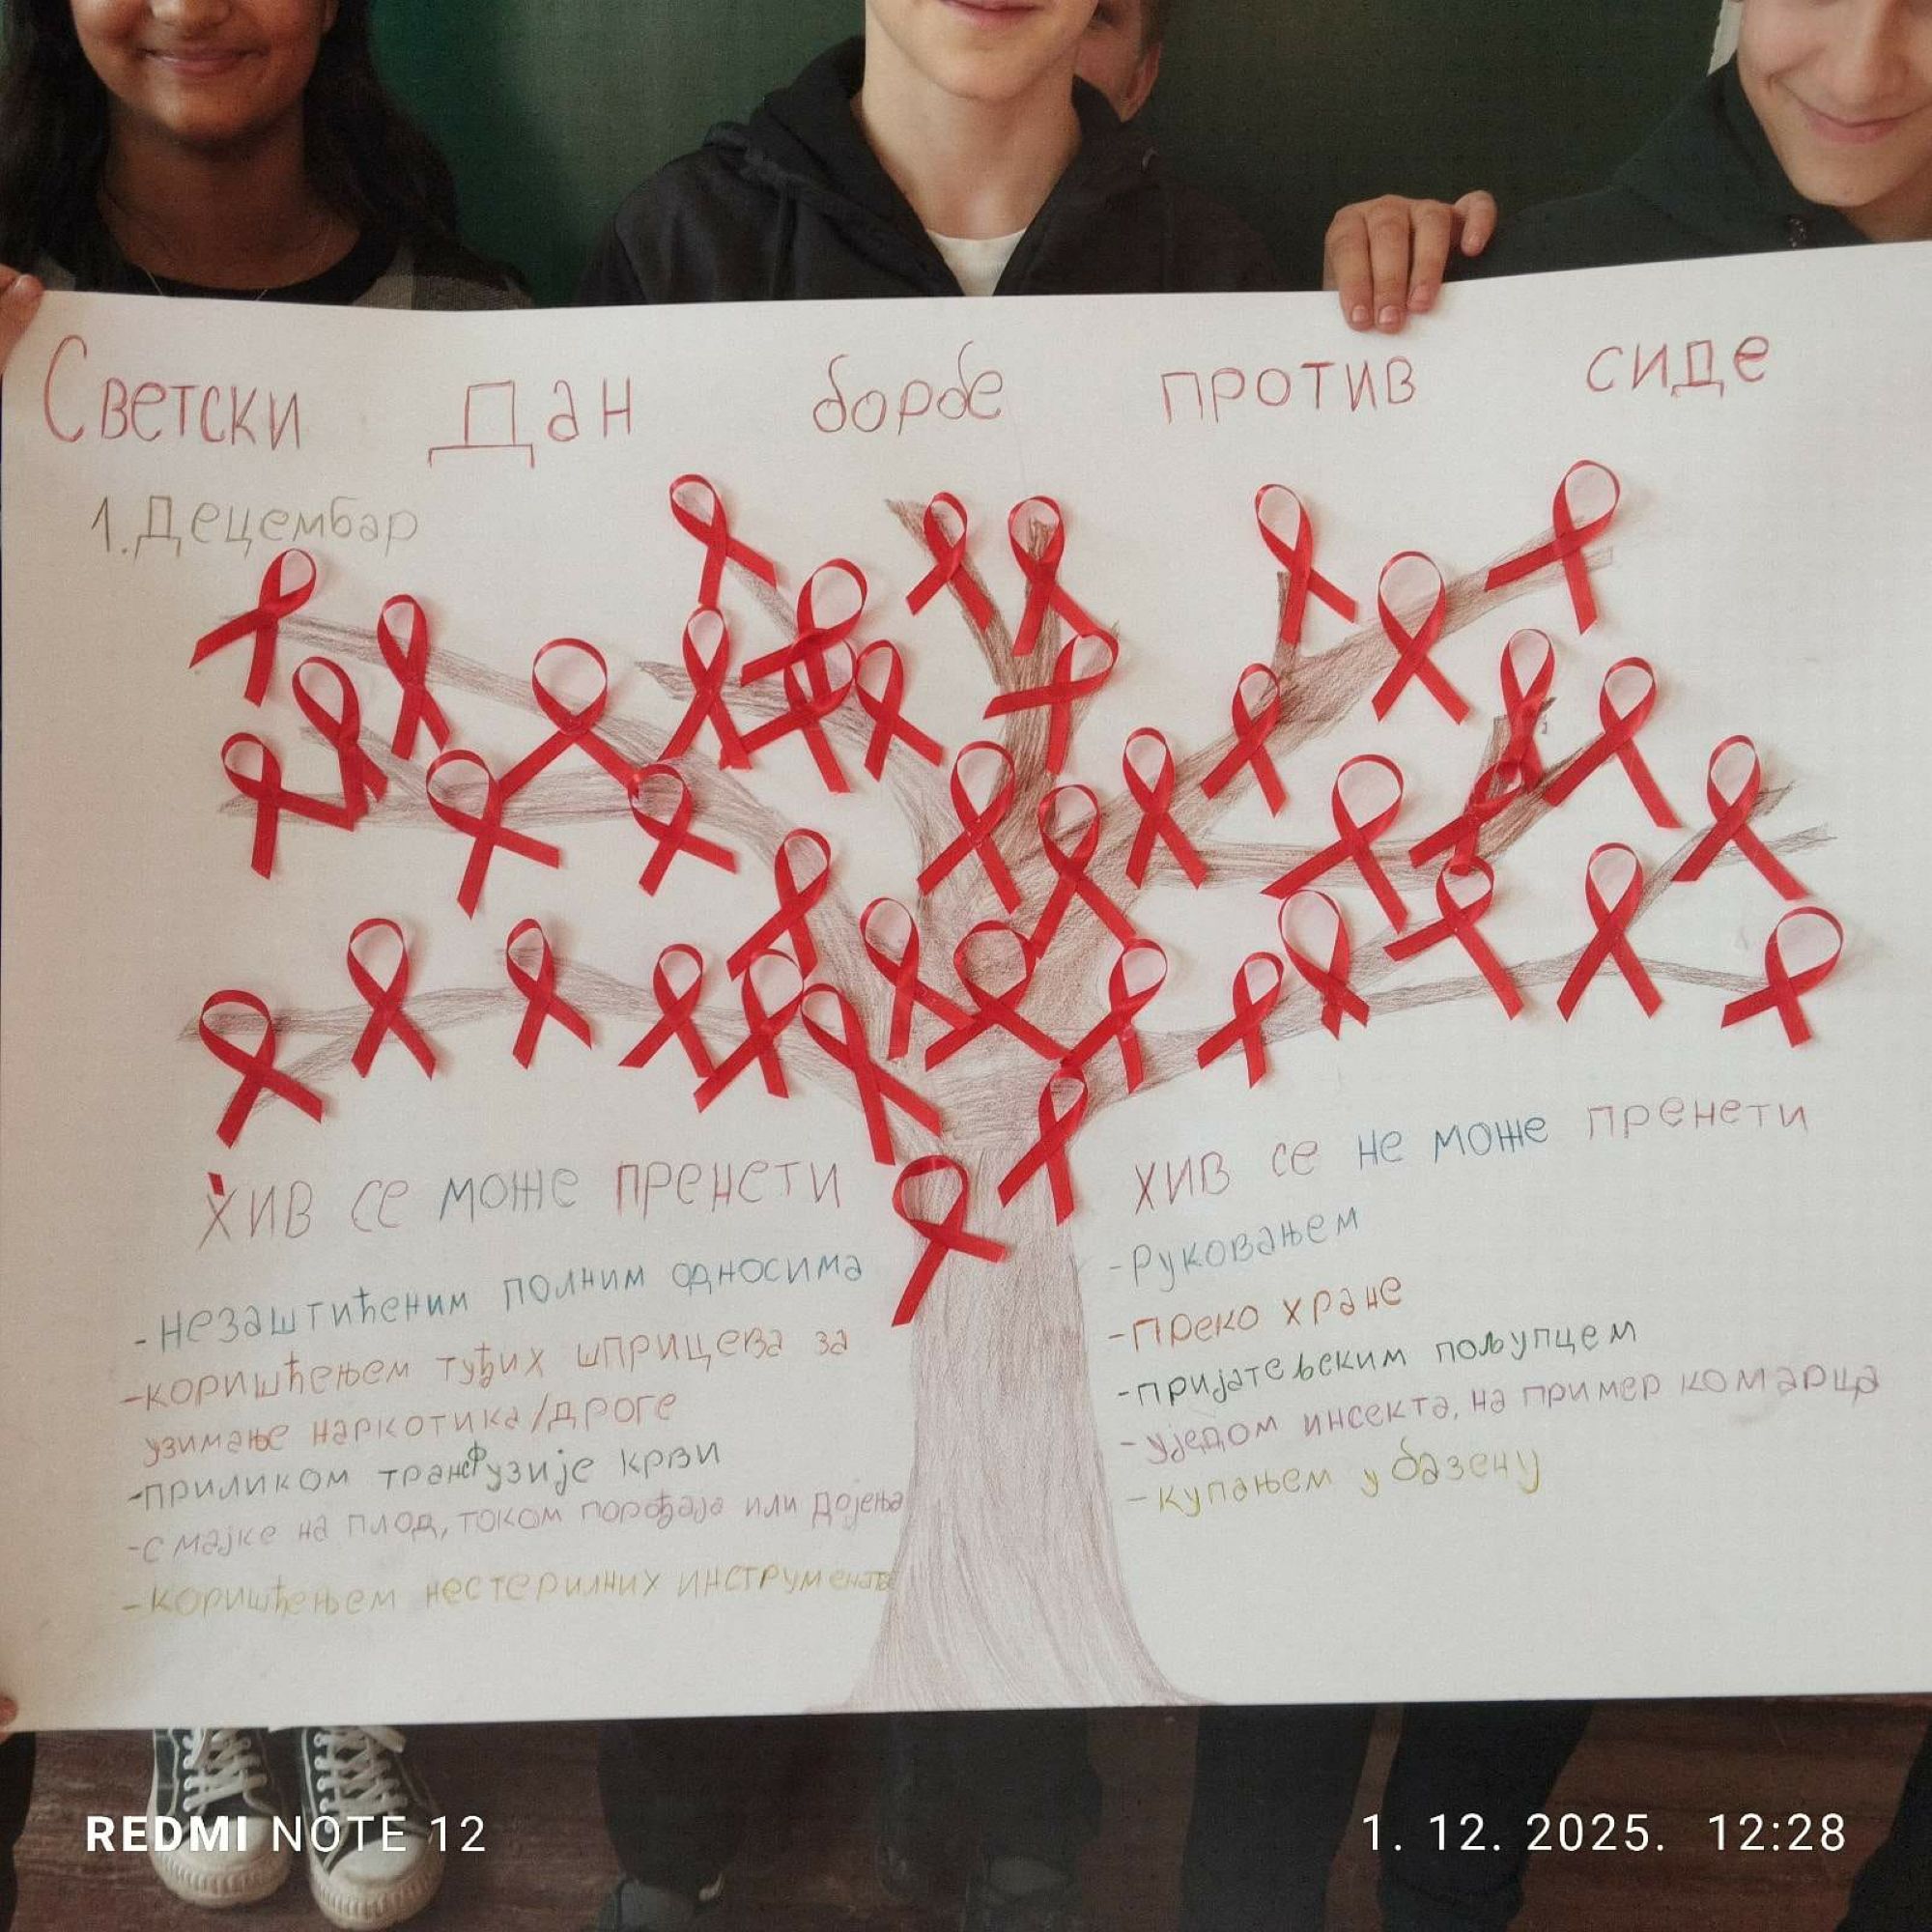 Светски Дан борбе против сиде
1. Децембар
ХИВ се може пренети
-незаштићеним полним односима
-коришћењем туђих шприцева за
узимање наркотика/дроге
-приликом трансфузије крви
-с мајке на плод, током порођаја или дојења
-коришћењем нестерилних инструмената
ХИВ се не може пренети
-Руковањем
-преко хране
-пријатељским пољупцем
-уједом инсекта, на пример комарца
-купањем у базену
REDMI NOTE 12
1. 12. 2025. 12:28